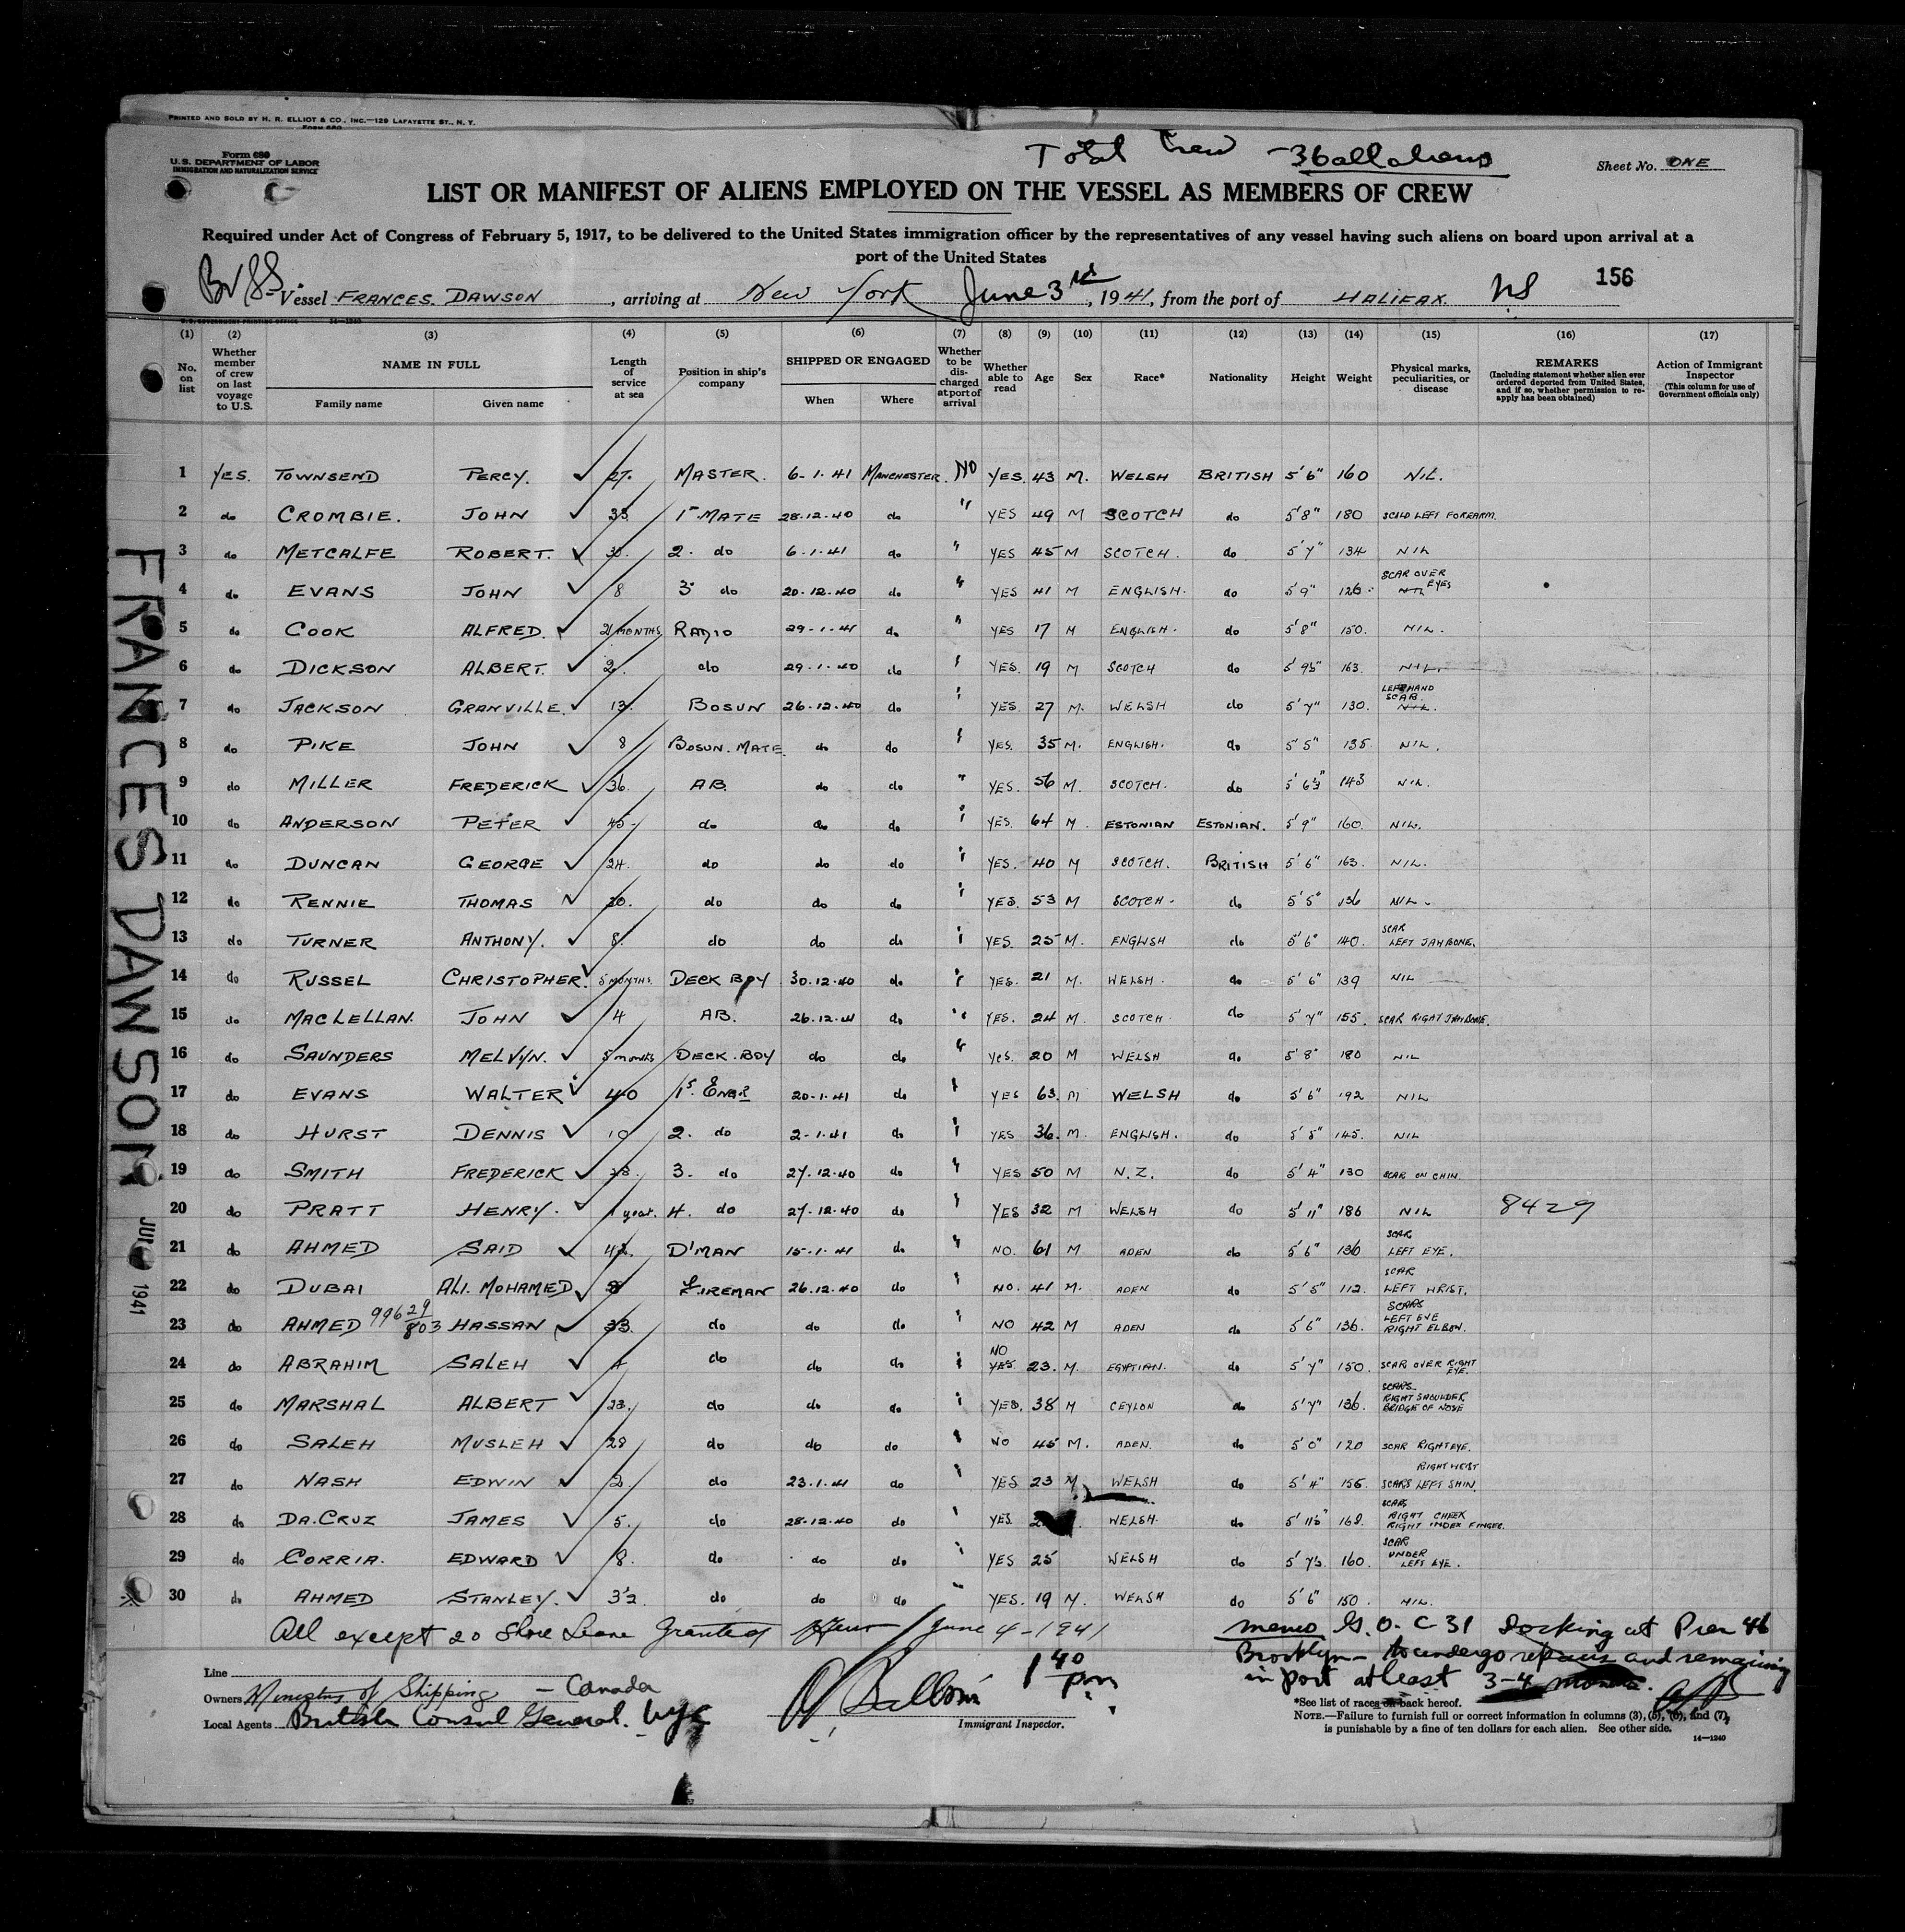 PRINTED AND SOLD BY H. R. ELLIOT & CO., INC.—129 LAFAYETTE ST., N. Y.
Form 680
Form 680
U.S. DEPARTMENT OF LABOR
IMMIGRATION AND NATURALIZATION SERVICE
Total Crew - 36 all aliens
Sheet No. ONE
LIST OR MANIFEST OF ALIENS EMPLOYED ON THE VESSEL AS MEMBERS OF CREW
Required under Act of Congress of February 5, 1917, to be delivered to the United States immigration officer by the representatives of any vessel having such aliens on board upon arrival at a
port of the United States
Br SS Vessel FRANCES. DAWSON, arriving at New York June 3rd, 1941, from the port of HALIFAX. NS 156
(1) (2) (3) (4) (5) (6) (7) (8) (9) (10) (11) (12) (13) (14) (15) (16) (17)
No. on list Whether member of crew on last voyage to U.S. NAME IN FULL Family name Given name Length of service at sea Position in ship's company SHIPPED OR ENGAGED When Where Whether to be discharged at port of arrival Whether able to read Age Sex Race* Nationality Height Weight Physical marks, peculiarities, or disease REMARKS (Including statement whether alien ever ordered deported from United States, and if so, whether permission to reapply has been obtained) Action of Immigrant Inspector (This column for use of Government officials only)
1 YES. TOWNSEND PERCY. 27. MASTER. 6-1.41 MANCHESTER. NO YES. 43 M. WELSH BRITISH 5'6" 160 NIL.
2 do CROMBIE. JOHN 33 1st MATE 28.12.40 do " YES 49 M SCOTCH do 5'8" 180 SCALD LEFT FOREARM.
3 do METCALFE ROBERT. 30. 2. do 6.1.41 do " YES 45 M SCOTCH. do 5'7" 134 NIL
4 do EVANS JOHN 8 3 do 20.12.40 do " YES 41 M ENGLISH. do 5'9" 126 SCAR OVER EYES
5 do COOK ALFRED. MONTHS RADIO 29-1-41 do " YES 17 M ENGLISH. do 5'8" 150. NIL.
6 do DICKSON ALBERT. 2. do 29.1.40 do " YES. 19 M SCOTCH do 5'9½" 163. NIL.
7 do JACKSON GRANVILLE. 13. BOSUN 26.12.40 do " YES. 27 M. WELSH do 5'7" 130. LEFT HAND SCAR. NIL.
8 do PIKE JOHN 8 BOSUN. MATE. do do " YES. 35 M. ENGLISH. do 5'5" 135. NIL.
9 do MILLER FREDERICK 36. AB. do do " YES. 56 M. SCOTCH. do 5'6½" 143 NIL.
10 do ANDERSON PETER 45- do do do " YES. 64 M. ESTONIAN ESTONIAN. 5'9" 160. NIL.
11 do DUNCAN GEORGE 24. do do do " YES. 40 M SCOTCH. BRITISH 5'6" 163. NIL.
12 do RENNIE THOMAS 20. do do do " YES. 53 M SCOTCH. do 5'5" 136 NIL.
13 do TURNER ANTHONY. 8. do do do " YES. 25 M. ENGLISH do 5'6" 140. SCAR LEFT JAWBONE.
14 do RUSSEL CHRISTOPHER. 5 MONTHS. DECK BOY 30.12.40 do " YES. 21 M. WELSH. do 5'6" 139 NIL
15 do MACLELLAN. JOHN 4 AB. 26.12.41 do " YES. 24 M. SCOTCH. do 5'7" 155. SCAR RIGHT JAWBONE.
16 do SAUNDERS MELVYN. 5 months DECK.BOY do do " Yes. 20 M WELSH do 5'8" 180 NIL
17 do EVANS WALTER 40 1st ENGR 20.1.41 do " YES 63. M WELSH do 5'6" 192 NIL
18 do HURST DENNIS 10 2. do 2-1.41 do " YES 36. M. ENGLISH. do 5'5" 145. NIL
19 do SMITH FREDERICK 33. 3- do 27.12.40 do " YES 50 M N.Z. do 5'4" 130 SCAR ON CHIN.
20 do PRATT HENRY. 1 year. 4. do 27.12.40 do " YES 32 M WELSH do 5'11" 186 NIL 8429
21 do AHMED SAID 42. D'MAN 15.1.41 do " NO. 61 M ADEN do 5'6" 136 SCAR LEFT EYE.
22 do DUBAI ALI. MOHAMED FIREMAN 26.12.40 do " NO. 41 M. ADEN do 5'5" 112. SCAR LEFT WRIST.
23 do AHMED 99629/803 HASSAN 33. do do do " NO 42 M ADEN do 5'6" 136. SCARS LEFT EYE RIGHT ELBOW.
24 do ABRAHIM SALEH 4 do do do " NO YES 23. M. EGYPTIAN. do 5'7" 150. SCAR OVER RIGHT EYE.
25 do MARSHAL ALBERT 23. do do do " YES. 38 M CEYLON do 5'7" 136. SCARS. RIGHT SHOULDER BRIDGE OF NOSE
26 do SALEH MUSLEH 28 do do do " NO 45 M. ADEN. do 5'0" 120 SCAR RIGHT EYE.
27 do NASH EDWIN 2. do 23.1.41 do " YES 23 M. WELSH do 5'4" 156. RIGHT WRIST SCARS LEFT SHIN.
28 do DA.CRUZ JAMES 5. do 28.12.40 do " YES WELSH. do 5'11½" 168. SCARS RIGHT CHEEK RIGHT INDEX FINGER.
29 do CORRIA. EDWARD 8. do do do " YES 25 WELSH do 5'7½ 160. SCAR UNDER LEFT EYE.
30 do AHMED STANLEY. 3½ do do do " YES. 19 M. WELSH do 5'6" 150. NIL.
All except 20 Shore Leave Granted June 4-1941
memo G.O. C-31 Docking at Pier 46
Brooklyn - to undergo repairs and remaining
in port at least 3-4 months.
Line
Owners Ministry of Shipping - Canada
Local Agents British Consul General. NYC
1 40 pm
Immigrant Inspector.
*See list of races on back hereof.
NOTE.—Failure to furnish full or correct information in columns (3), (5), (6), and (7),
is punishable by a fine of ten dollars for each alien. See other side.
14—1240
FRANCES DAWSON
1941